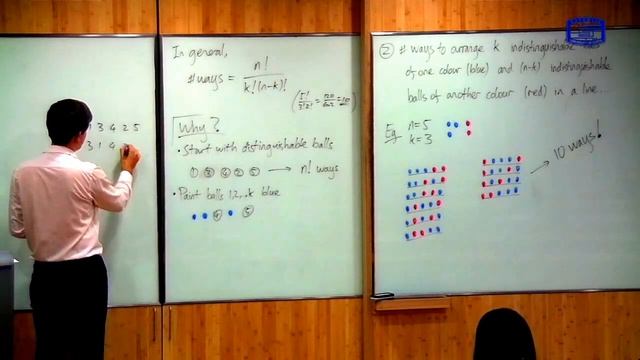 1 3 4 2 5
3 1 4
In general,
# ways = n! / k!(n-k)!
(5!/3!2! = 120/6×2 = 10)
Why?
• Start with distinguishable balls
① ③ ④ ② ⑤ → n! ways
• Paint balls 1,2,..k blue
④ ⑤
② # ways to arrange k indistinguishable
of one colour (blue) and (n-k) indistinguishable
balls of another colour (red) in a line...
Eg n=5
k=3
→ 10 ways!